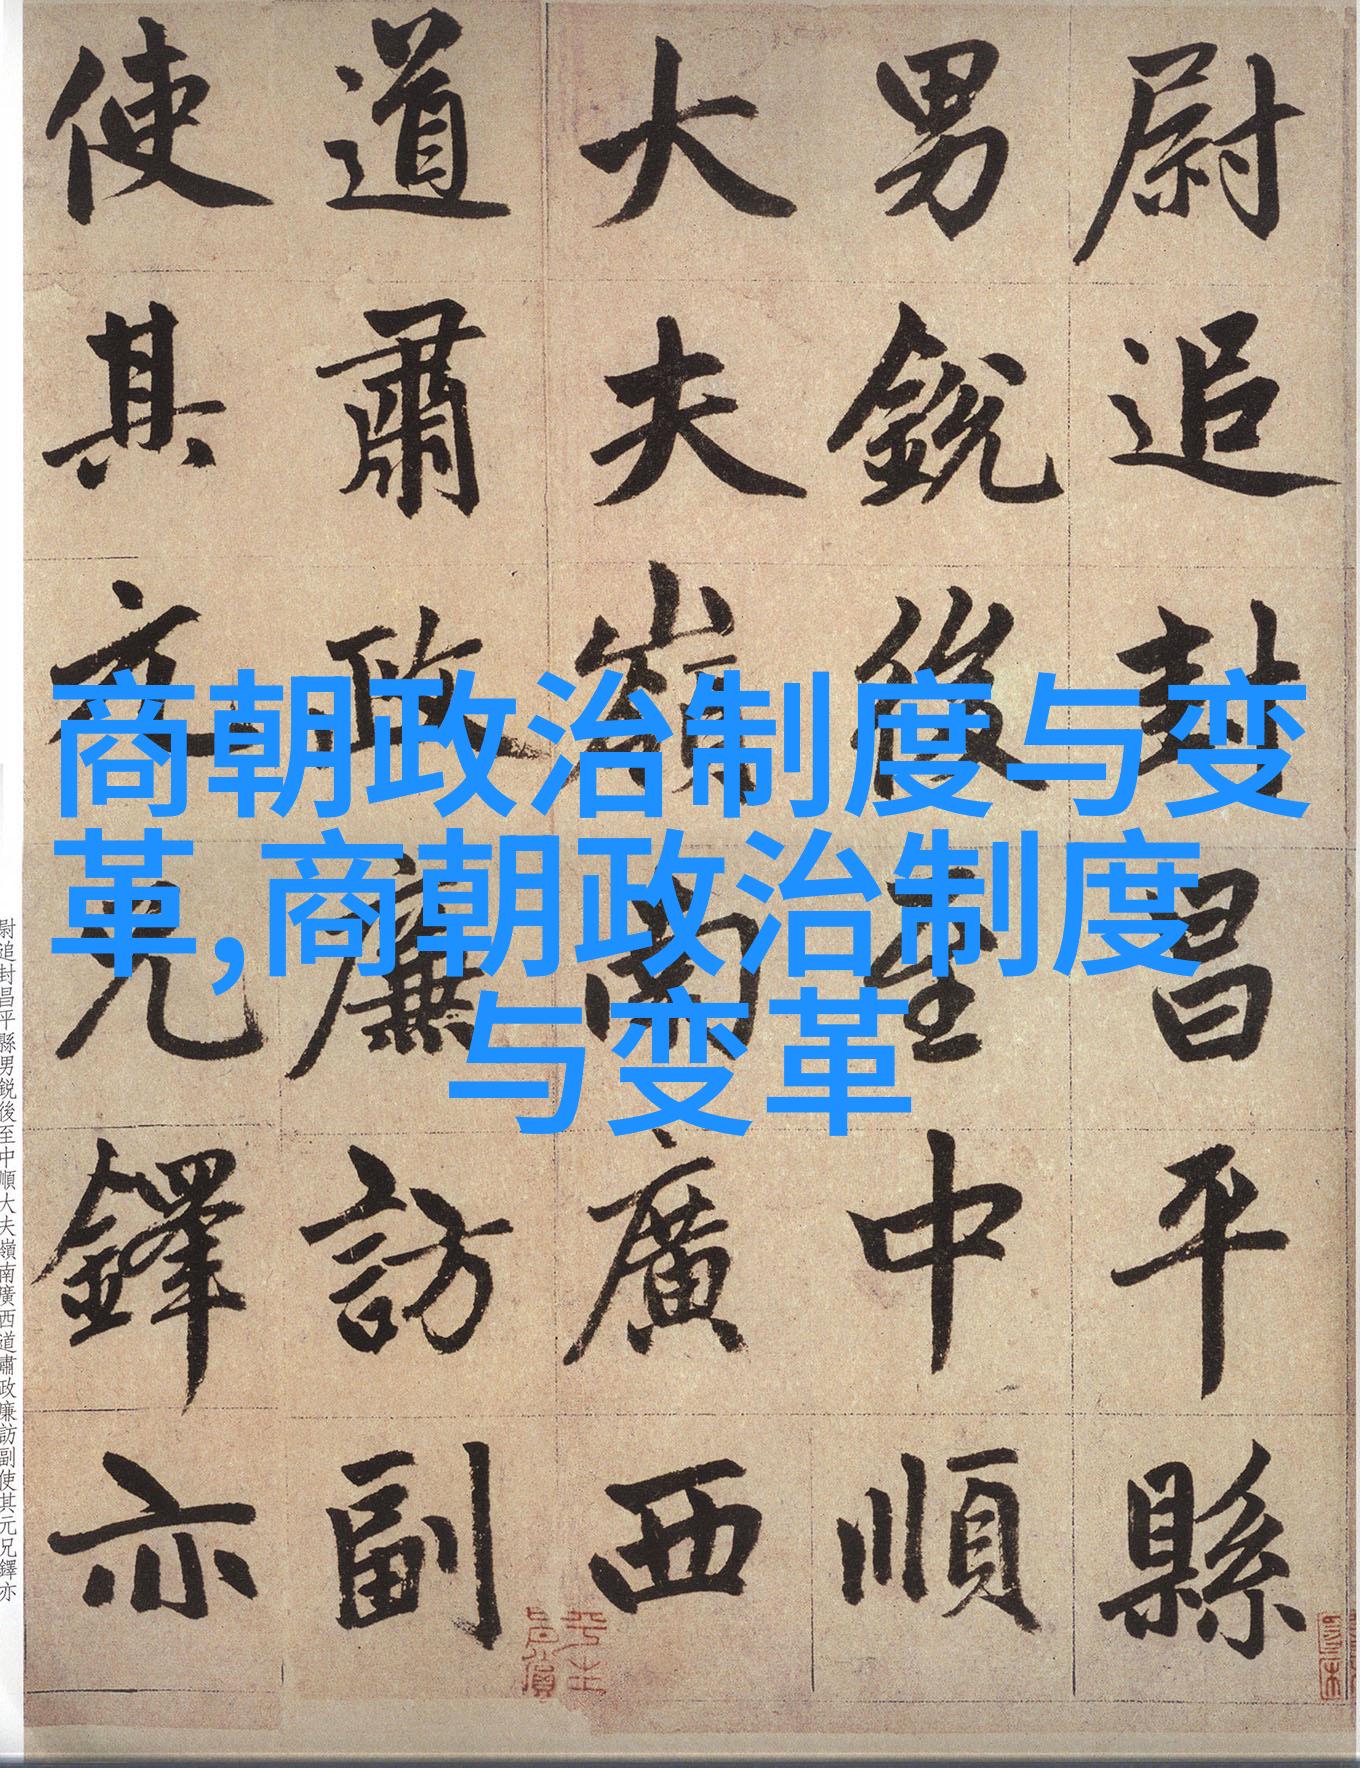 尉追封昌平縣
男銳後至中順
大夫嶺南廣西
道肅政廉訪副
使其元兄鐸亦
商朝政治制度与变
革,商朝政治制度
与变革
尉追封昌平縣男銳後至中順大夫嶺南廣西道肅政廉訪副使其元兄鐸亦